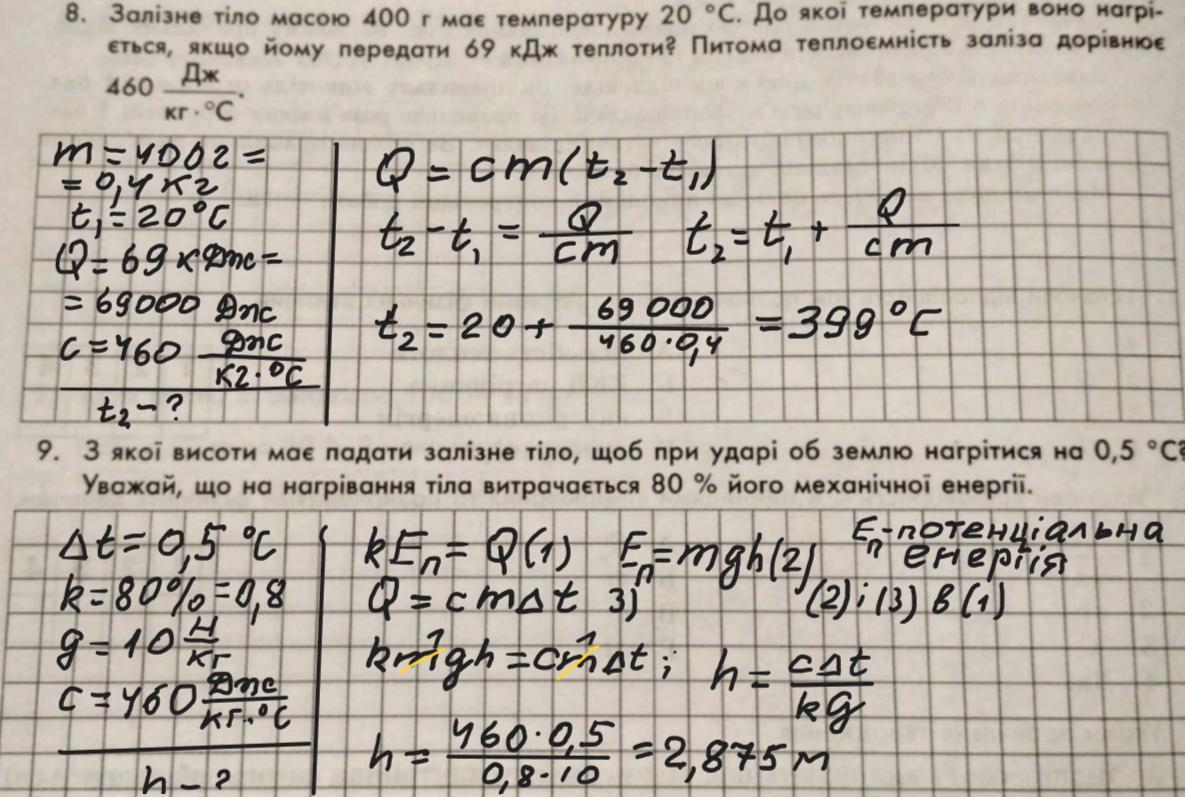 8. Залізне тіло масою 400 г має температуру 20 °C. До якої температури воно нагрі-
ється, якщо йому передати 69 кДж теплоти? Питома теплоємність заліза дорівнює
460 Дж/(кг · °C).
m = 400 г =
= 0,4 кг
t₁ = 20 °C
Q = 69 кДж =
= 69000 Дж
c = 460 Дж/(кг·°C)
t₂ – ?
Q = cm(t₂ – t₁)
t₂ – t₁ = Q/(cm) t₂ = t₁ + Q/(cm)
t₂ = 20 + 69 000/(460·0,4) = 399 °C
9. З якої висоти має падати залізне тіло, щоб при ударі об землю нагрітися на 0,5 °C?
Уважай, що на нагрівання тіла витрачається 80 % його механічної енергії.
Δt = 0,5 °C
k = 80% = 0,8
g = 10 Н/кг
c = 460 Дж/(кг·°C)
h – ?
kEп = Q (1) Eп = mgh (2) Eп - потенціальна
енергія
Q = cmΔt 3) (2) і (3) в (1)
km¹gh = cm¹Δt ; h = cΔt/(kg)
h = 460·0,5/(0,8·10) = 2,875 м